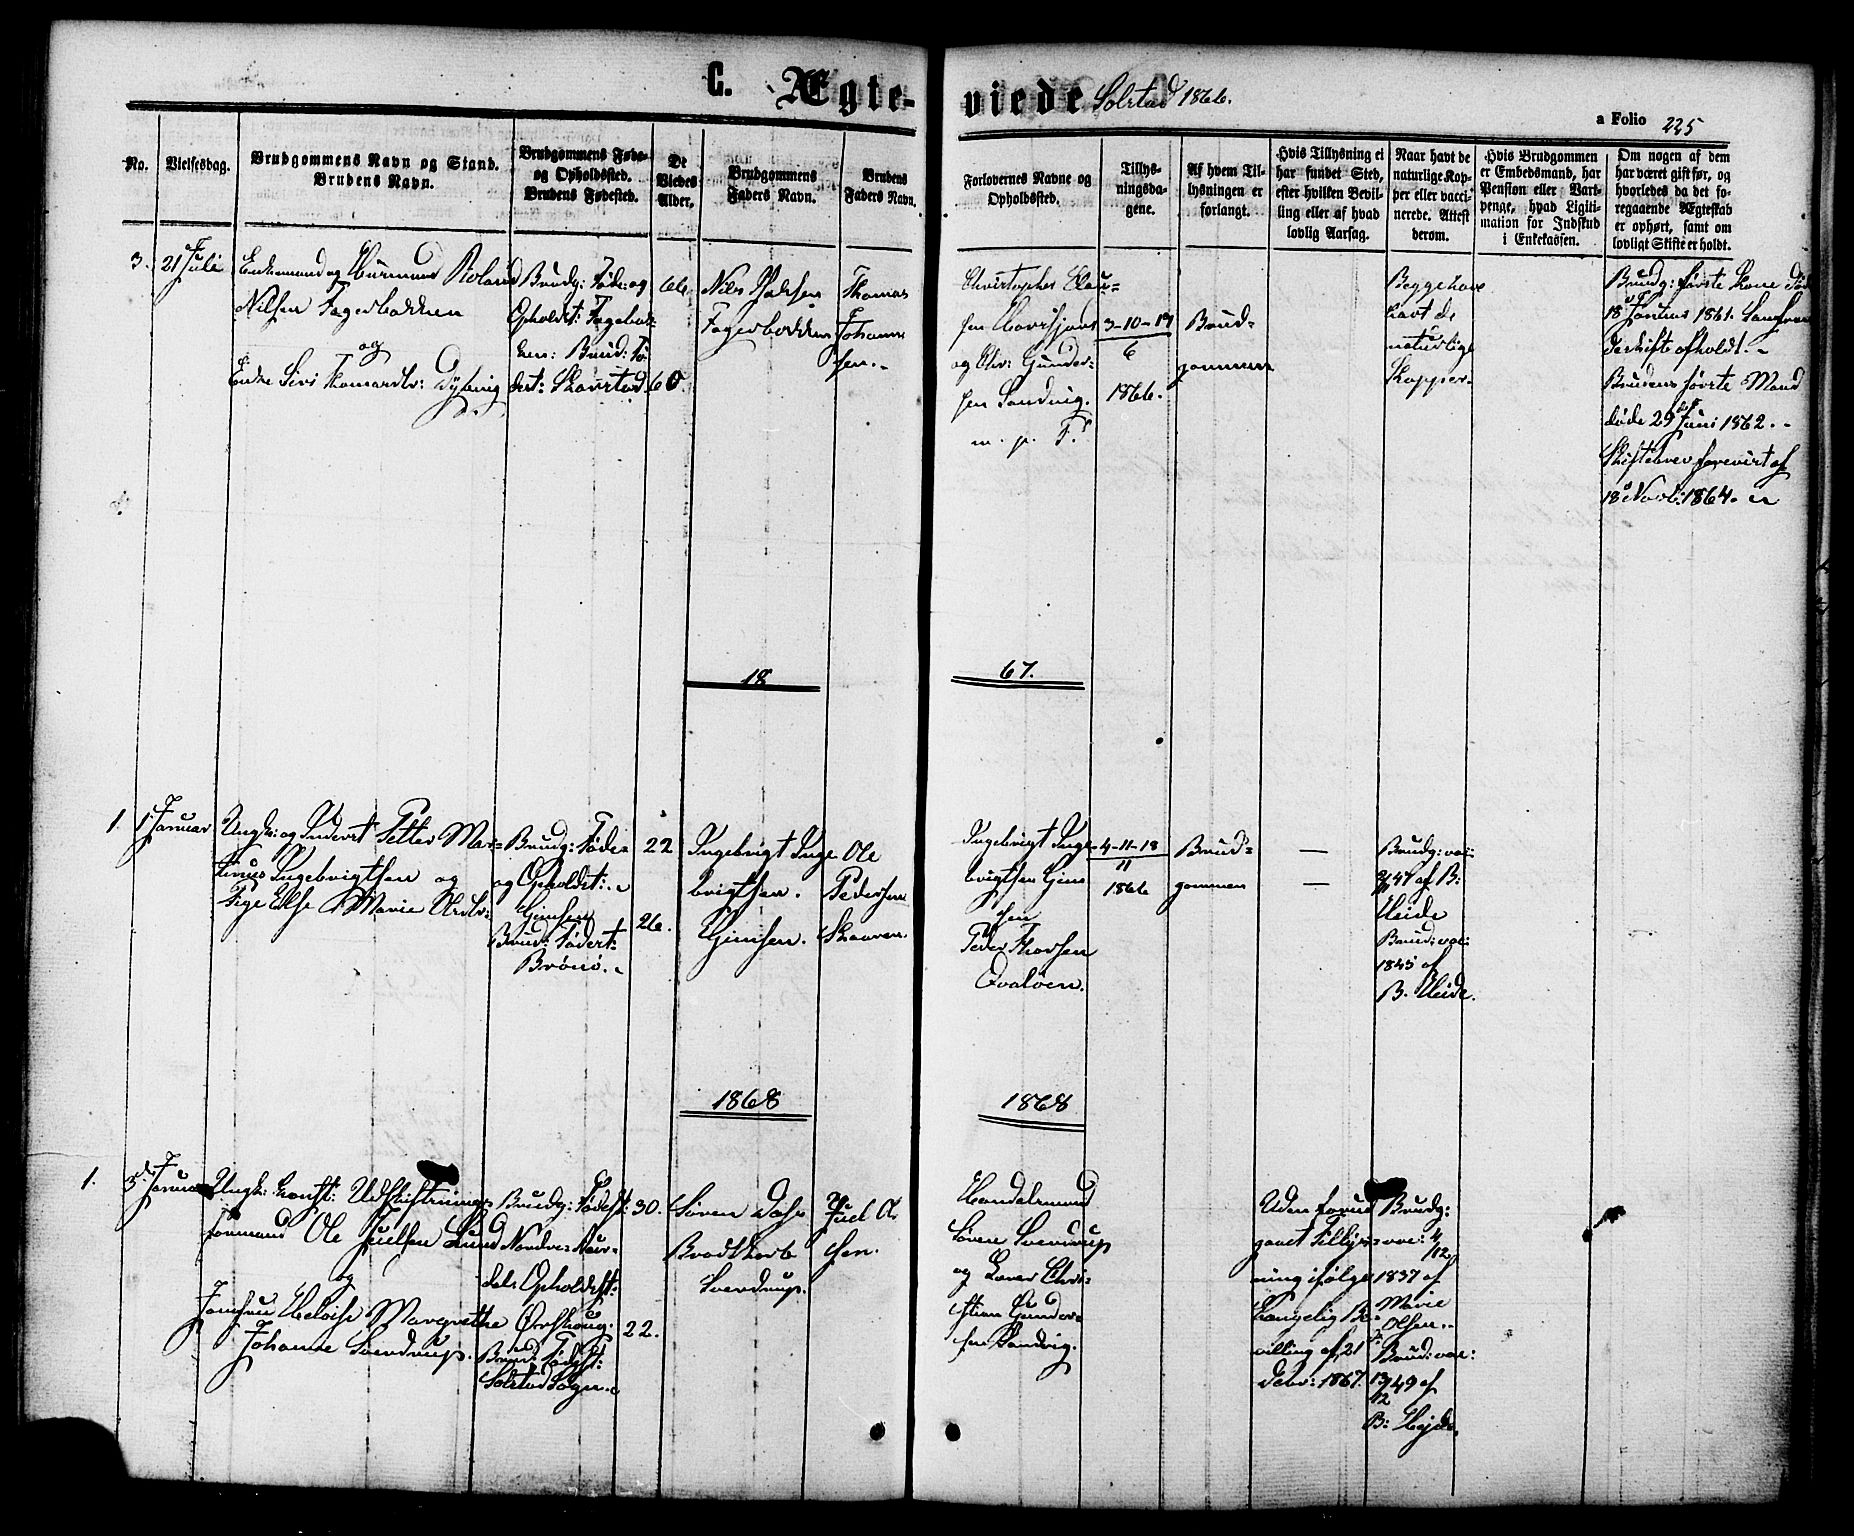 C. Ægte-
viede Solstad 1866.
a Folio 225
No.
Vielsesdag.
Brudgommens Navn og Stand.
Brudens Navn.
Brudgommens Føde-
og Opholdssted.
Brudens Fødested.
De
Viedes
Alder.
Brudgommens
Faders Navn.
Brudens
Faders Navn.
Forlovernes Navne og
Opholdssted.
Tillys-
ningsda-
gene.
Af hvem Til-
lysningen er
forlangt.
Hvis Tillysning ei
har fundet Sted,
efter hvilken Bevil-
ling eller af hvad
lovlig Aarsag.
Naar havt de
naturlige Kop-
per eller vacci-
nerede. Attest
derom.
Hvis Brudgommen
er Embedsmand, har
Pension eller Vart-
penge, hvad Ligiti-
mation for Indskud
i Enkekassen.
Om nogen af dem
har været gift før, og
hvorledes da det fo-
regaaende Ægteskab
er ophørt, samt om
lovligt Skifte er holdt.
3.
21 Juli
Enkemand og Huusmand Roland
Nilsen Fagerbakken
og
Enke Siri Thomasdtr: Dybvig
Brudg: Føde: og
Opholdst: Fagerbak-
ken: Brud: Fø-
dest: Skarstad
66
60.
Nils
Fagerbakken
Thomas
Johanne-
sen.
Christopher Clau-
sen
og Chr: Gunder-
sen Sandvig.
m. p. F.
3-10-17
6
1866.
Brud-
gommen
Begge have
havt de
naturlige
Kopper
Brudg: første Kone død
18 Januar 1861.
Skifte afholdt.
Brudens første Mand
døde 29 Juni 1862.
Skiftebrev forevist af
18 Novb: 1864.
18
67.
1.
1 Januar
Ungk: og Inderst Petter Mar-
tinus Ingebrigtsen og
Pige Else Marie Olsdtr:
Brudg: Føde-
og Opholdst:
Gimsen
Brud: Fødest:
Brønø.
22
26.
Ingebrigt Inge
brigtsen.
Gimsen.
Ole
Pedersen
Skaaren.
Ingebrigt Inge
brigtsen Gim
sen
Peder Thorsen
Qvaløen.
4-11-18
11
1866
Brud-
gommen
—
—
Brudg: vac:
47 af B:
Heide
Brud: vac:
1845 af
B. Heide.
1868
1868
1.
3 Januar
Ungk: Konst: Udskiftnings
formand Ole Juelsen Lund
og
Jomfru Heloise Margrethe
Johanne Sverdrup.
Brudg: Fødest:
Nordre Aur-
dal: Opholdst:
Ørskoug.
Brud: Fødest:
Solstad Sogn.
30.
22.
Søren Dass
Brodtkorb
Sverdrup.
Juel O.
sen.
Handelsmand
Søren Sverdrup
og Chri-
stian Gunder-
sen Sandvig.
Uden forud
gaaet Tillys-
ning ifølge
Kongelig Be-
villing af 21
Debr: 1867.
Brudg:
vac: 4/12
1837 af
Marie
Olsen.
Brud: vac:
13/12 49 af
B: Hejde.